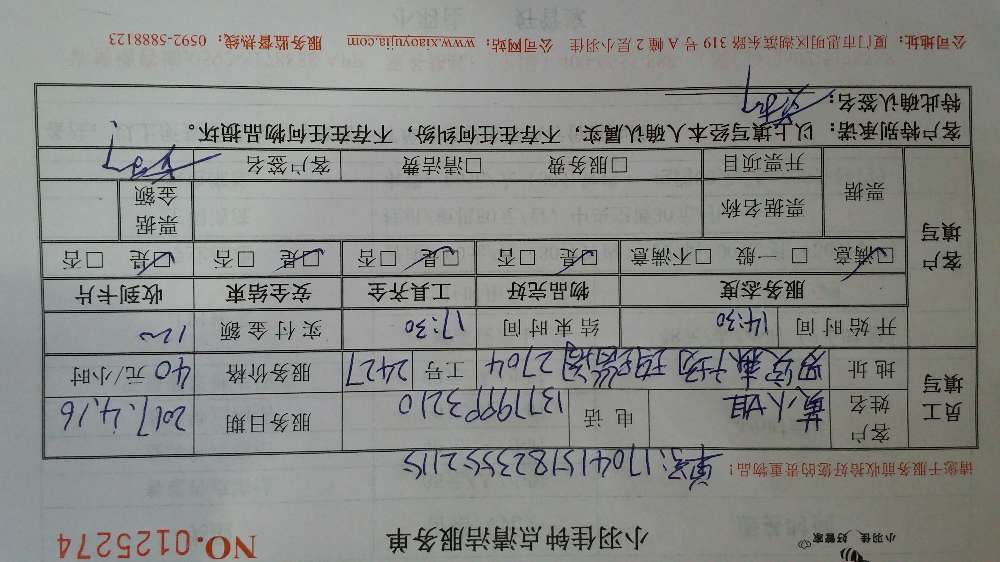 小羽佳 好管家
小羽佳钟点清洁服务单
NO.0125274
请您于服务前收拾好您的贵重物品!
单号:1704151823552115
员工填写
客户姓名 黄小姐 电话 13779993210 服务日期 2017.4.16
地址 2704 工号 2427 服务价格 40元/小时
开始时间 14:30 结束时间 17:30 实付金额 120
客户填写
服务态度 物品完好 工具齐全 安全结束 收到卡片
☑满意 □一般 □不满意 ☑是 □否 ☑是 □否 ☑是 □否 ☑是 □否
票据 票据名称 票据金额
开票项目 □服务费 □清洁费 客户签名
客户特别承诺:以上填写经本人确认属实,不存在任何纠纷,不存在任何物品损坏。
特此确认签名:
公司地址:厦门市思明区湖滨东路319号A幢2层小羽佳 公司网站:www.xiaoyujia.com 服务监督热线:0592-5888123